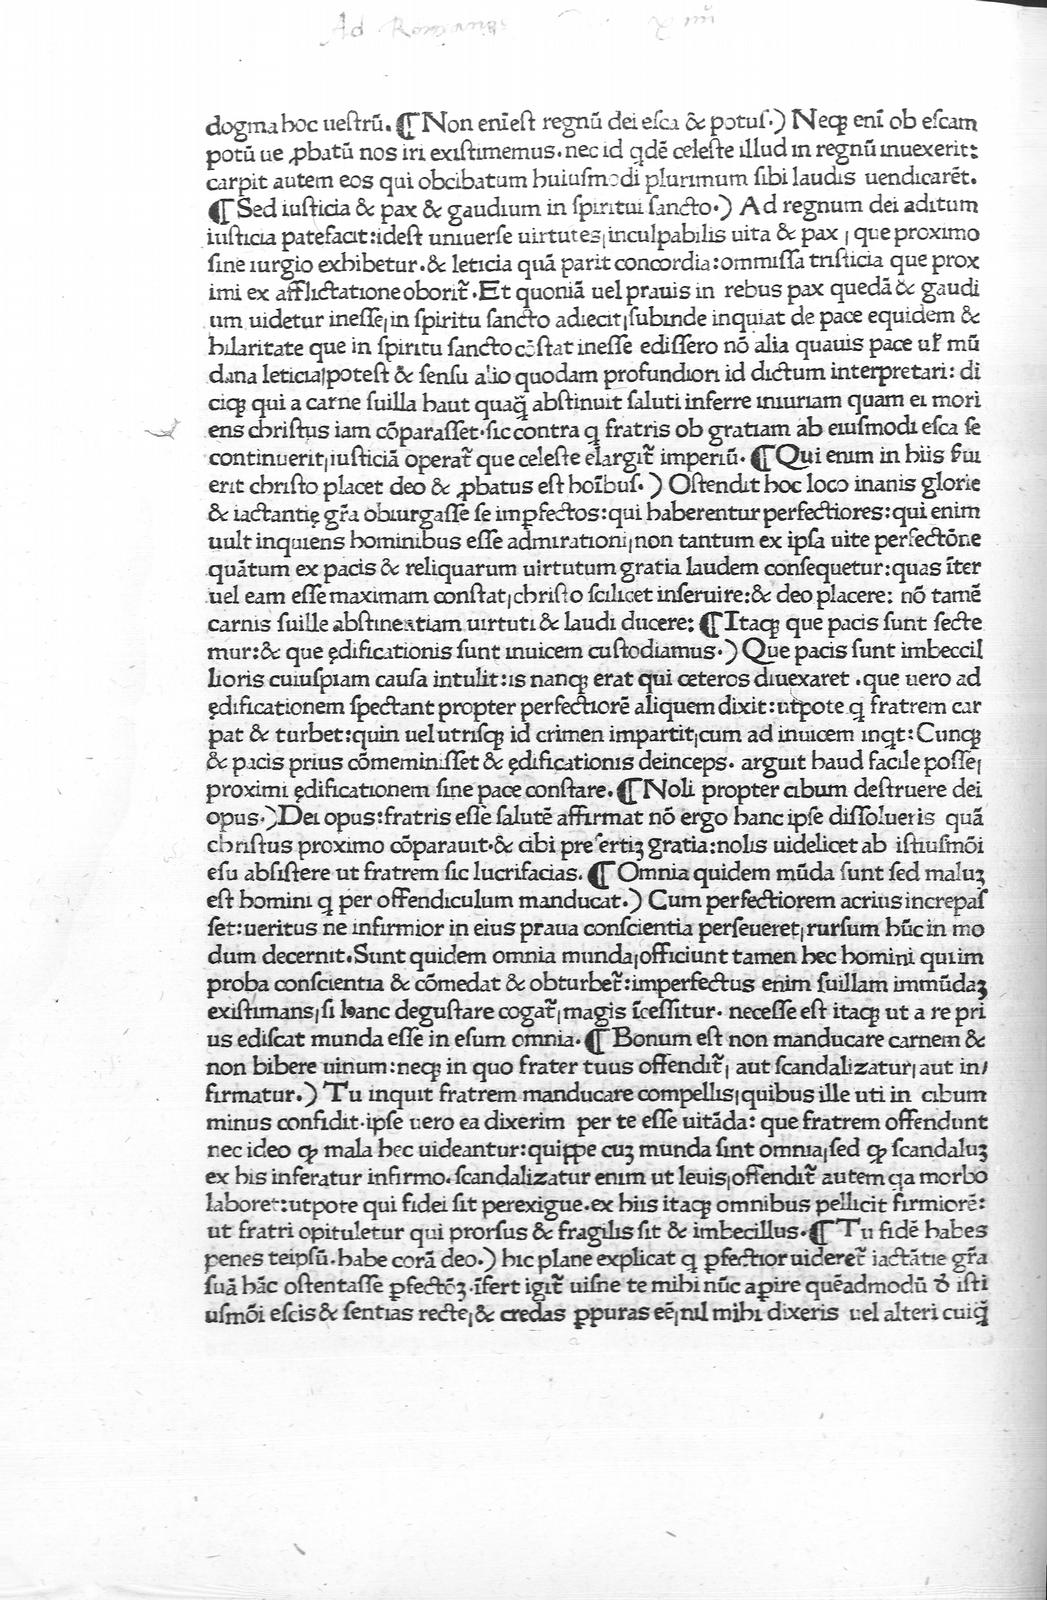 Ad Romanos
dogma hoc uestrū. ¶ Non enī est regnū dei esca & potus.) Neqꝫ enī ob escam
potū ue ꝓbatū nos iri existimemus. nec id qdē celeste illud in regnū inuexerit:
carpit autem eos qui obcibatum huiusmodi plurimum sibi laudis uendicarēt.
¶ Sed iusticia & pax & gaudium in spiritui sancto.) Ad regnum dei aditum
iusticia patefacit: idest uniuerse uirtutes, inculpabilis uita & pax, que proximo
sine iurgio exhibetur. & leticia quā parit concordia: ommissa tristicia que prox
imi ex afflictatione oborit̃. Et quoniā uel prauis in rebus pax quedā & gaudi
um uidetur inesse, in spiritu sancto adiecit, subinde inquiat de pace equidem &
hilaritate que in spiritu sancto cōstat inesse edissero nō alia quauis pace uꝉ mū
dana leticia, potest & sensu alio quodam profundiori id dictum interpretari: di
ciqꝫ qui a carne suilla haut quaq̄ abstinuit saluti inferre iniuriam quam ei mori
ens christus iam cōparasset. sic contra q fratris ob gratiam ab eiusmodi esca se
continuerit, iusticiā operat̃ que celeste elargit̃ imperiū. ¶ Qui enim in hiis s̃ui
erit christo placet deo & ꝓbatus est hoībus.) Ostendit hoc loco inanis glorie
& iactantię gr̃a obiurgasse se imꝑfectos: qui haberentur perfectiores: qui enim
uult inquiens hominibus esse admirationi, non tantum ex ipsa uite perfectōne
quātum ex pacis & reliquarum uirtutum gratia laudem consequetur: quas īter
uel eam esse maximam constat, christo scilicet inseruire: & deo placere: nō tamē
carnis suille abstinentiam uirtuti & laudi ducere: ¶ Itaqꝫ que pacis sunt secte
mur: & que ędificationis sunt inuicem custodiamus.) Que pacis sunt imbecil
lioris cuiuspiam causa intulit: is nanqꝫ erat qui ceteros diuexaret. que uero ad
ędificationem spectant propter perfectiorē aliquem dixit: utpote q fratrem car
pat & turbet: quin uel utrisqꝫ id crimen impartit, cum ad inuicem inqt: Cunqꝫ
& pacis prius cōmeminisset & ędificationis deinceps. arguit haud facile posse,
proximi ędificationem sine pace constare. ¶ Noli propter cibum destruere dei
opus.) Dei opus: fratris esse salutē affirmat nō ergo hanc ipse dissolueris quā
christus proximo cōparauit. & cibi presertiꝫ gratia: nolis uidelicet ab istiusmōi
esu absistere ut fratrem sic lucrifacias. ¶ Omnia quidem mūda sunt sed maluꝫ
est homini q per offendiculum manducat.) Cum perfectiorem acrius increpas
set: ueritus ne infirmior in eius praua conscientia perseueret, rursum hūc in mo
dum decernit. Sunt quidem omnia munda, officiunt tamen hec homini qui im
proba conscientia & cōmedat & obturbet̃: imperfectus enim suillam immūdaꝫ
existimans, si hanc degustare cogat̃, magis īcessitur. necesse est itaqꝫ ut a re pri
us ediscat munda esse in esum omnia. ¶ Bonum est non manducare carnem &
non bibere uinum: neqꝫ in quo frater tuus offendit̃, aut scandalizatur, aut in/
firmatur.) Tu inquit fratrem manducare compellis, quibus ille uti in cibum
minus confidit. ipse uero ea dixerim per te esse uitāda: que fratrem offendunt
nec ideo ꝙ mala hec uideantur: quippe cuꝫ munda sint omnia, sed ꝙ scandaluꝫ
ex his inferatur infirmo. scandalizatur enim ut leuis, offendit̃ autem qa morbo
laboret: utpote qui fidei sit perexigue. ex hiis itaqꝫ omnibus pellicit firmiorē:
ut fratri opituletur qui prorsus & fragilis sit & imbecillus. ¶ Tu fidē habes
penes teipsū. habe corā deo.) hic plane explicat q ꝑfectior uideret̃ iactātie gr̃a
suā hāc ostentasse ꝑfectōꝫ. īfert igit̃ uisne te mihi nūc aꝑire quēadmodū đ isti
usmōi escis & sentias recte, & credas ꝑpuras eē, nil mihi dixeris uel alteri cuiq̄